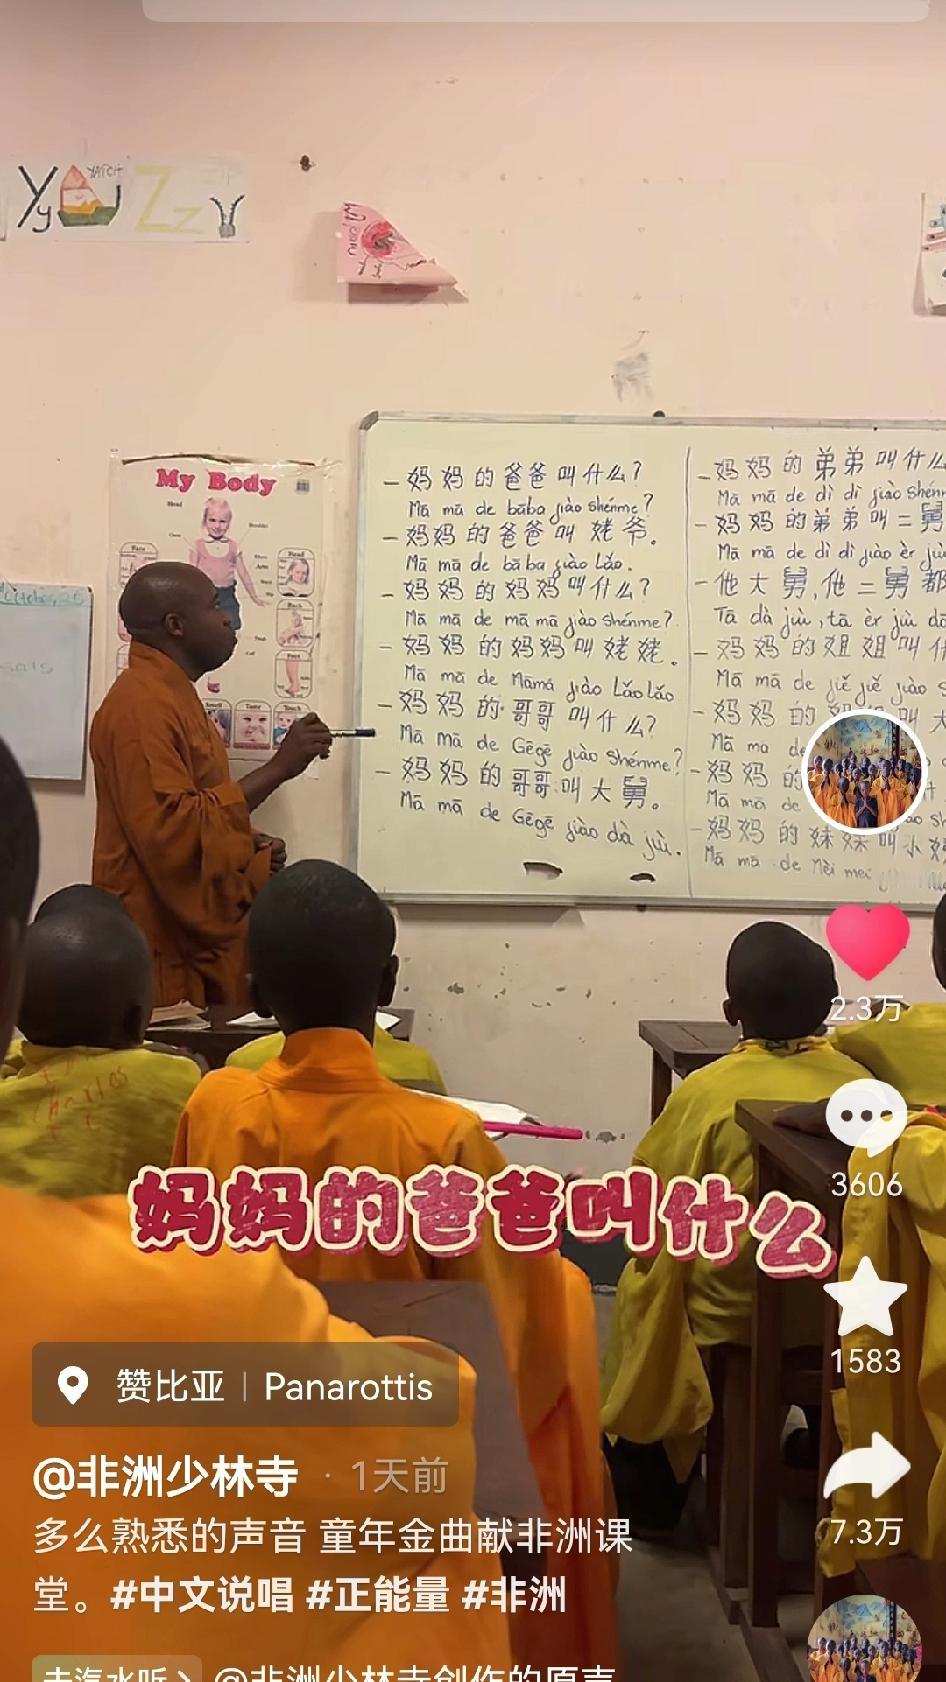 Yy
YATCH
Zz
My Body
Head
Head
Back
Smell
Taste
Touch
– 妈妈的爸爸叫什么?
Mā mā de bàba jiào shénme?
– 妈妈的爸爸叫姥爷.
Mā mā de bàba jiào lǎo.
– 妈妈的妈妈叫什么?
Mā mā de mā mā jiào shénme?
– 妈妈的妈妈叫姥姥.
Mā mā de Māmā jiào Lǎolǎo
– 妈妈的哥哥叫什么?
Mā mā de Gēgē jiào shénme?
– 妈妈的哥哥叫大舅。
Mā mā de Gēgē jiào dà jiù.
– 妈妈的弟弟叫什么
Mā mā de dì dì jiào
– 妈妈的弟弟叫二舅
Mā mā de dì dì jiào èr
– 他大舅,他二舅都
Tā dà jiù, tā èr jiù
– 妈妈的姐姐叫
Mā mā de jiě jiě jiào
– 妈妈的
Mā ma de
– 妈妈
Mā mā de
– 妈妈的妹妹叫小
Mā mā de Mèi mei
2.3万
3606
妈妈的爸爸叫什么
1583
赞比亚 | Panarottis
@非洲少林寺 · 1天前
7.3万
多么熟悉的声音 童年金曲献非洲课
堂。#中文说唱 #正能量 #非洲
去汽水听 > @非洲少林寺创作的原声